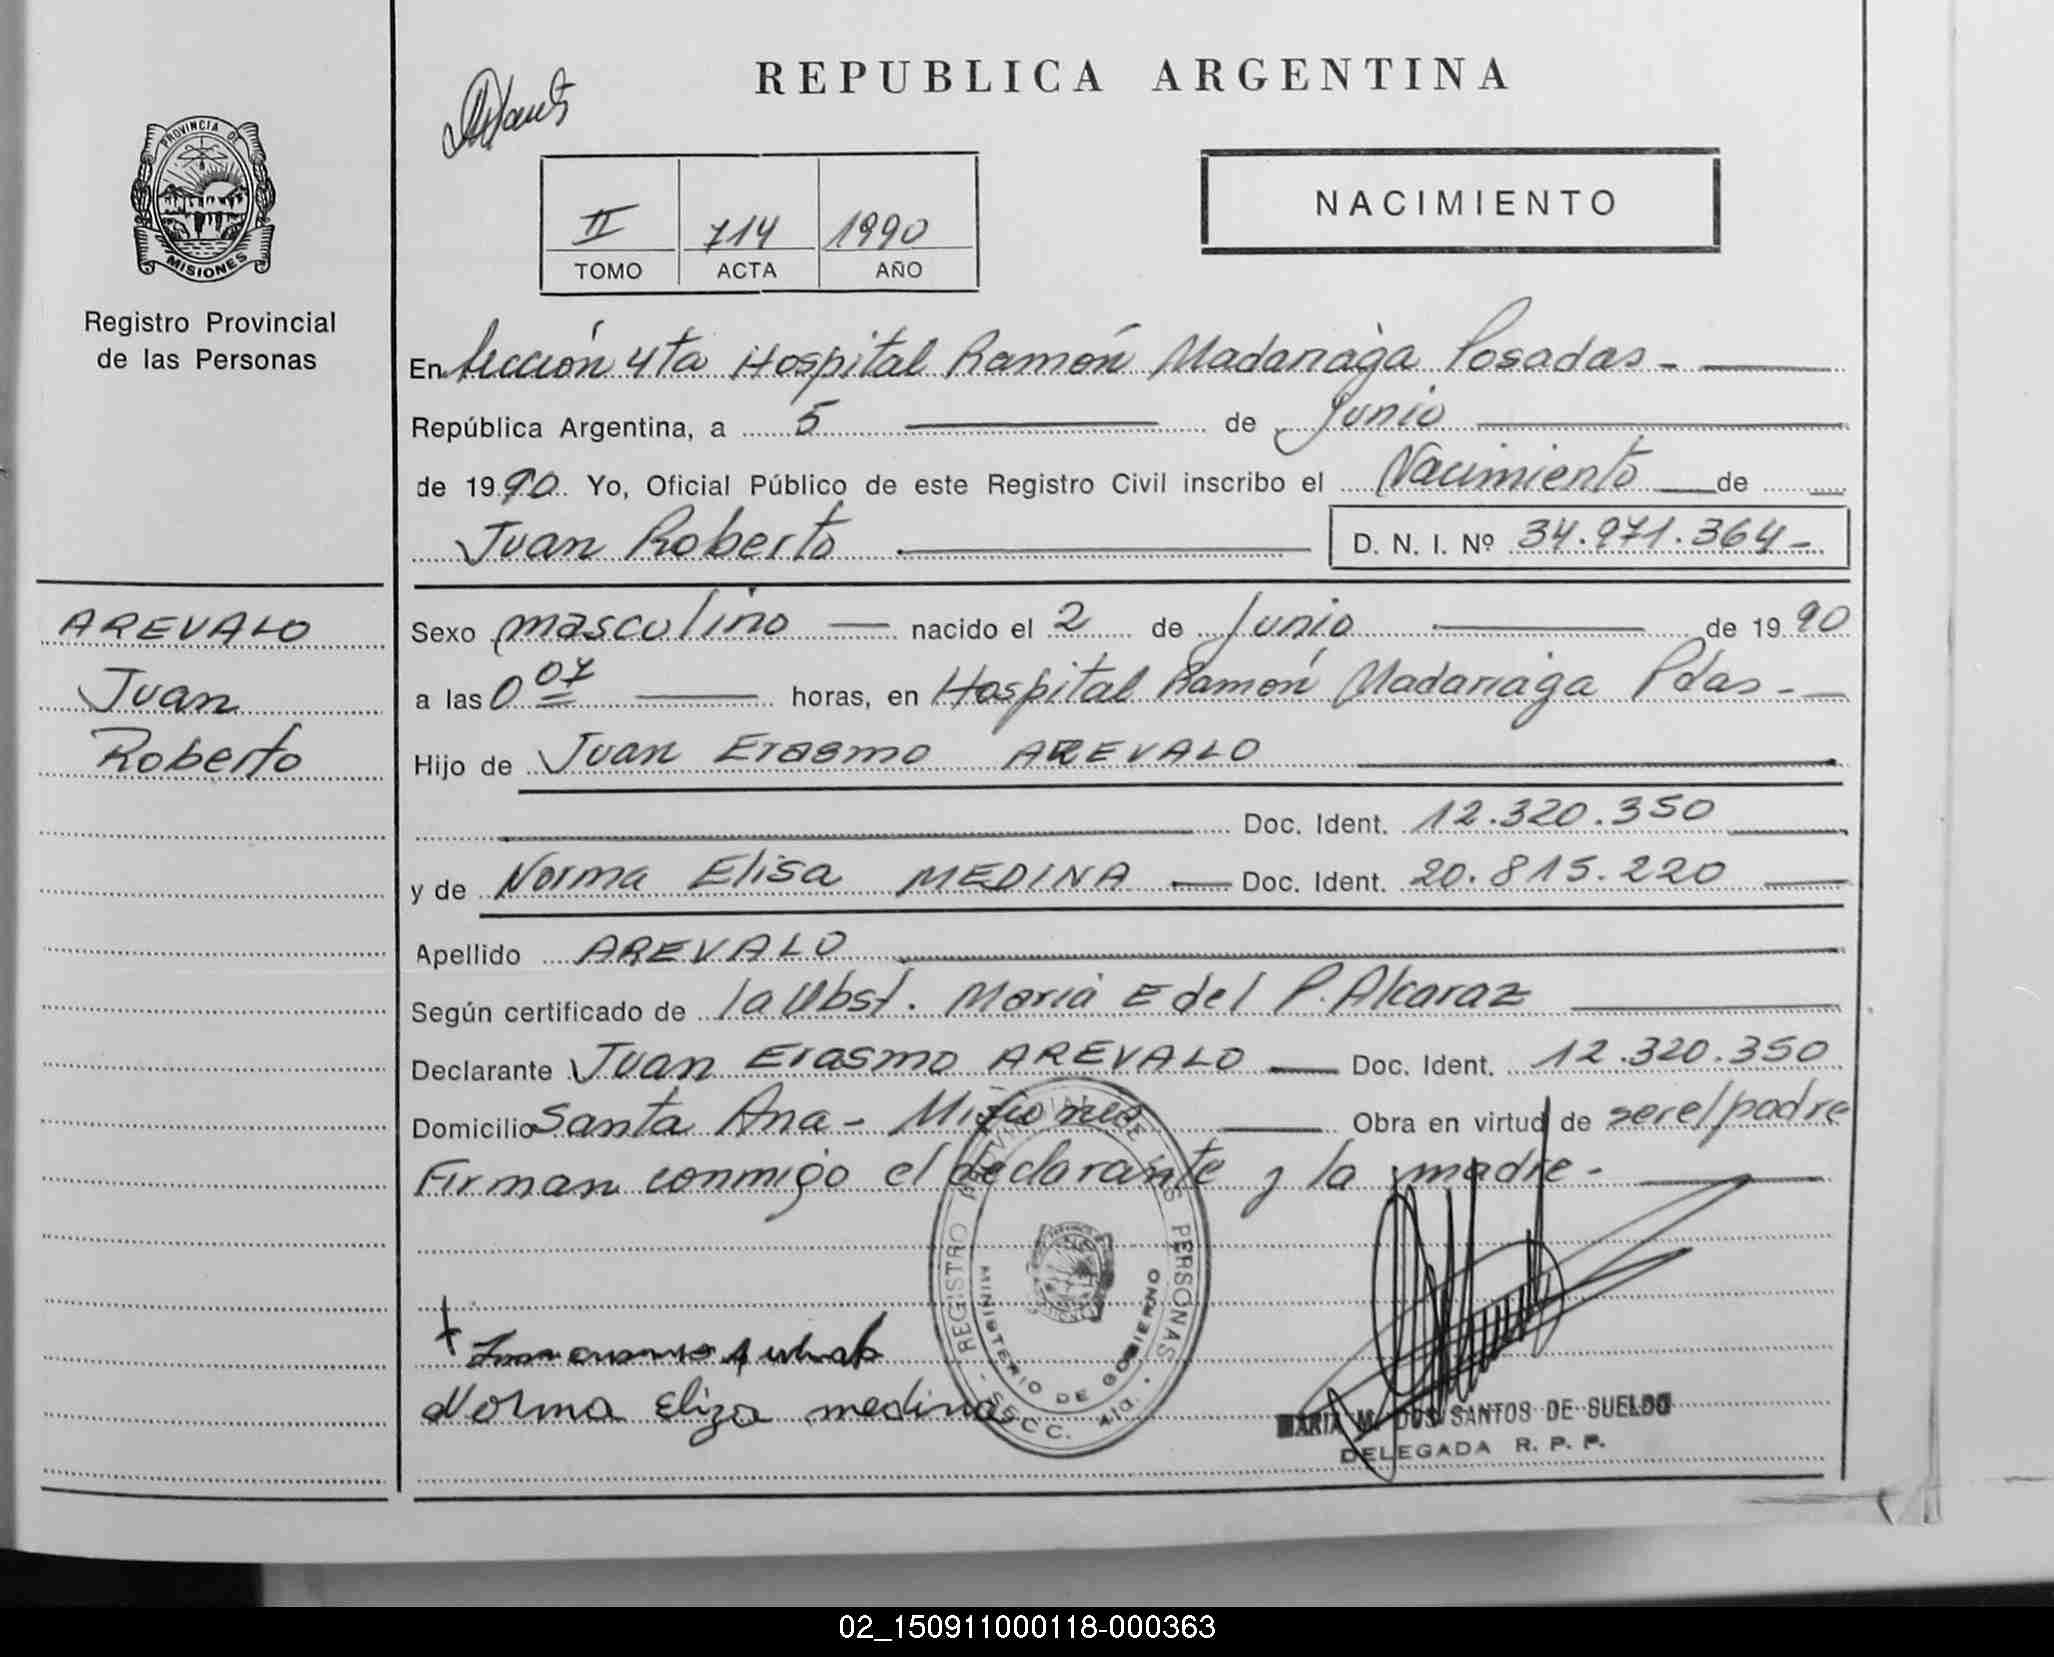 REPUBLICA ARGENTINA
PROVINCIA DE
MISIONES
Registro Provincial
de las Personas
II 714 1990
TOMO ACTA AÑO
NACIMIENTO
En Sección 4ta Hospital Ramón Madariaga Posadas -
República Argentina, a 5 de Junio
de 1990. Yo, Oficial Público de este Registro Civil inscribo el Nacimiento de
Juan Roberto D. N. I. Nº 34.971.364-
AREVALO
Juan
Roberto
Sexo masculino nacido el 2 de Junio de 1990
a las 0 07 horas, en Hospital Ramón Madariaga Pdas -
Hijo de Juan Erasmo AREVALO
Doc. Ident. 12.320.350
y de Norma Elisa MEDINA Doc. Ident. 20.815.220
Apellido AREVALO
Según certificado de la Obst. Maria E del P. Alcaraz
Declarante Juan Erasmo AREVALO Doc. Ident. 12.320.350
Domicilio Santa Ana - Misiones Obra en virtud de ser el padre
Firman conmigo el declarante y la madre -
REGISTRO PROVINCIAL DE LAS PERSONAS
MINISTERIO DE GOBIERNO
SECC. 4ta.
Norma Eliza medina
MARIA M. DOS SANTOS DE SUELDO
DELEGADA R. P. P.
02_150911000118-000363